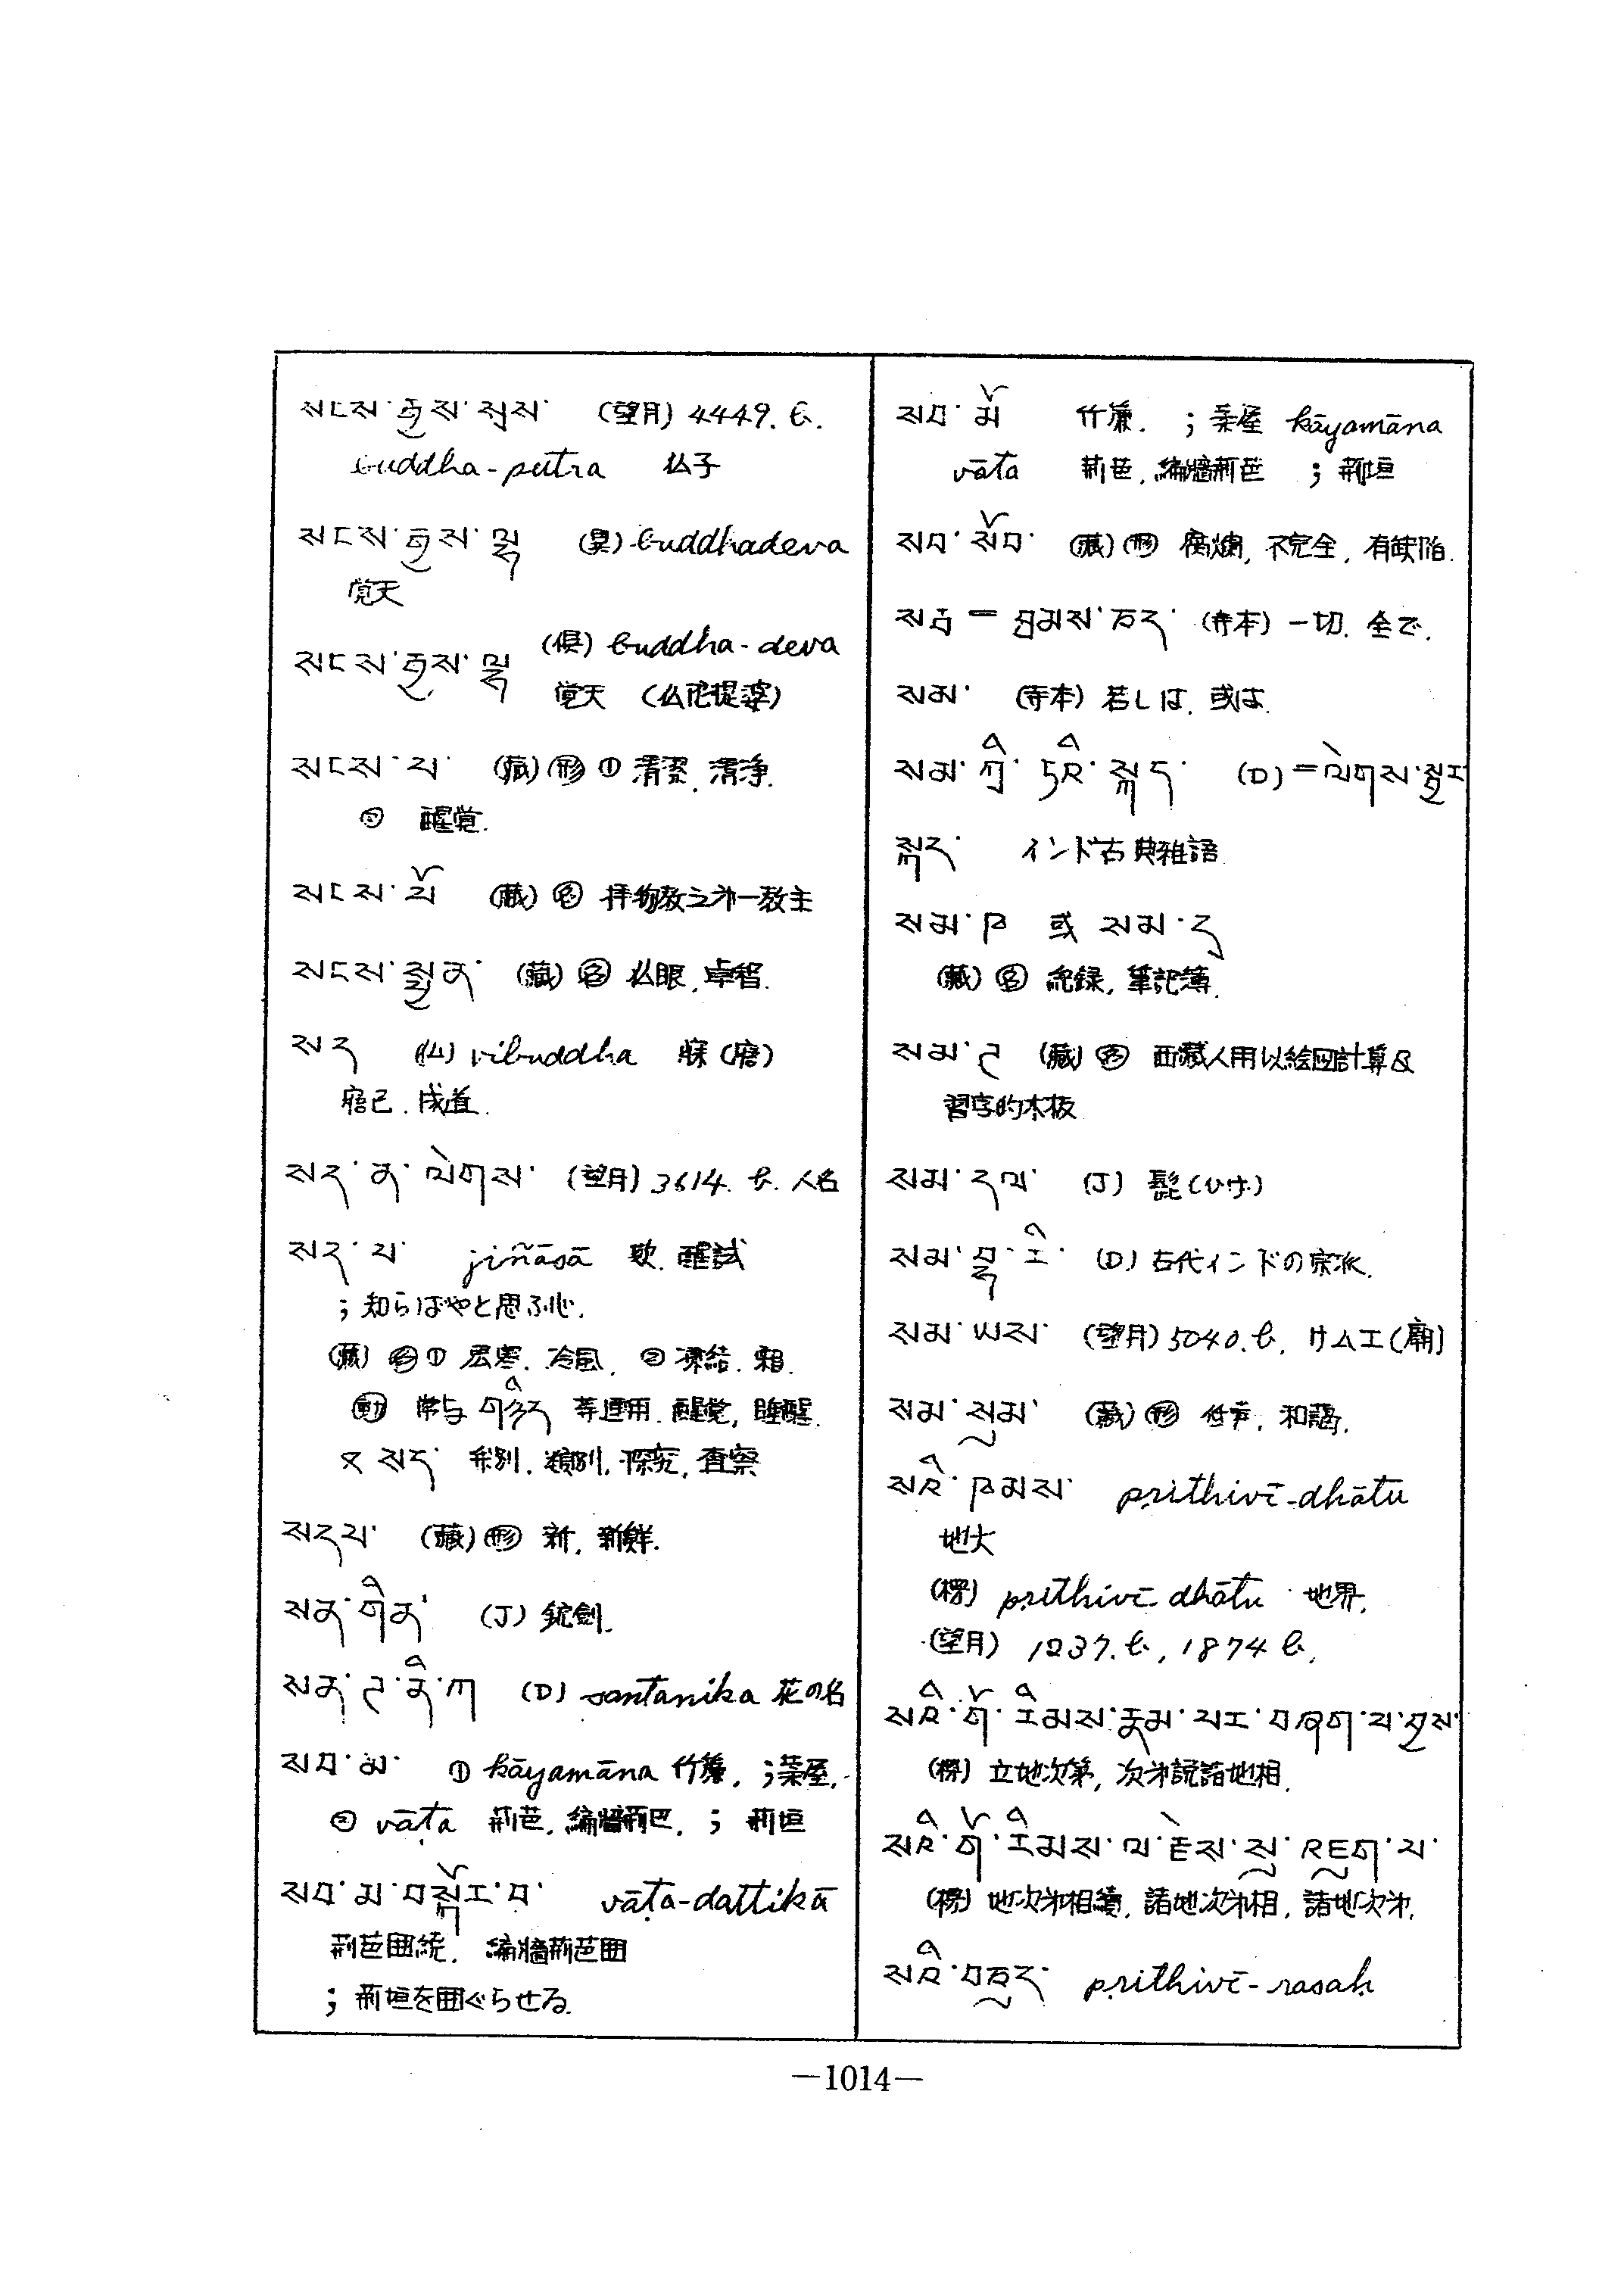 སངས་རྒྱས་སྲས་ (望月) 4449. b.
buddha-putra 仏子
སངས་རྒྱས་ལྷ (昊) buddhadeva
覚天
སངས་རྒྱས་ལྷ (倶) buddha-deva
覚天 (仏陀提婆)
སངས་པ་ (蔵) 形 ① 清潔, 清浄.
② 醒覚.
སངས་པོ (蔵) 名 拝物教之第一教主
སངས་སྤྱན་ (蔵) 名 仏眼, 卓智.
སད (仏) vibuddha 寤 (寤)
寤已. 成道.
སད་ན་ལེགས་ (望月) 3614. b. 人名
སད་པ་ jiñāsā 歎. 醒試
; 知らばやと思ふ心.
(蔵) 名 ① 厳寒. 冷風. ② 凍結. 霜.
動 常与 གཉིད 等連用. 醒覚, 睡醒.
又 སད་ 弁別. 類別. 探究, 査察
སདཔ་ (蔵) 形 新, 新鮮.
སན་གིན་ (J) 銃剣.
སན་ཏ་ནི་ཀ (D) santanika 花の名
སབ་མ་ ① kāyamāna 竹簾. ; 葉屋.
② vāṭa 荊芭. 編牆荊巴. ; 荊垣
སབ་མ་བསྐོར་བ་ vāṭa-dattikā
荊芭囲繞. 編牆荊芭囲
; 荊垣を囲ぐらせる.
སབ་མོ 竹簾. ; 葉屋 kāyamāna
vāta 荊芭, 編牆荊芭 ; 荊垣
སབ་སོབ་ (蔵) 形 腐爛, 不完全, 有缺陥.
(寺本) 一切. 全で.
སམ་ (寺本) 若しは. 或は.
སམ་ཀྲྀ་ཏའི་སྐད་ (D) = ལེགས་སྦྱར
སྐད་ インド古典雅語
སམ་ཁ 或 སམ་དུ
(蔵) 名 紀録, 筆記簿.
སམ་ཏ (蔵) 名 西藏人用以絵図計算及
習字的木板
སམ་དལ་ (J) 髭 (ひげ)
སམ་བྷ་རི་ (D) 古代インドの宗派.
སམ་ཡས་ (望月) 5040. b. サムエ (廟)
སམ་སུམ་ (蔵) 形 低声, 和諧.
སའི་ཁམས་ pṛithivī-dhātu
地大
(楞) pṛithivī-dhātu 地界.
(望月) 1237. b, 1874 b.
སའི་གོ་རིམས་རྣམ་པར་བཞག་པ་བྱས་
(楞) 立地次第, 次第説諸地相.
སའི་གོ་རིམས་ལ་རྗེས་སུ་འཇུག་པ་
(楞) 地次第相續, 諸地次第相, 諸地次第.
སའི་བཅུད་ pṛithivī-rasaḥ
—1014—